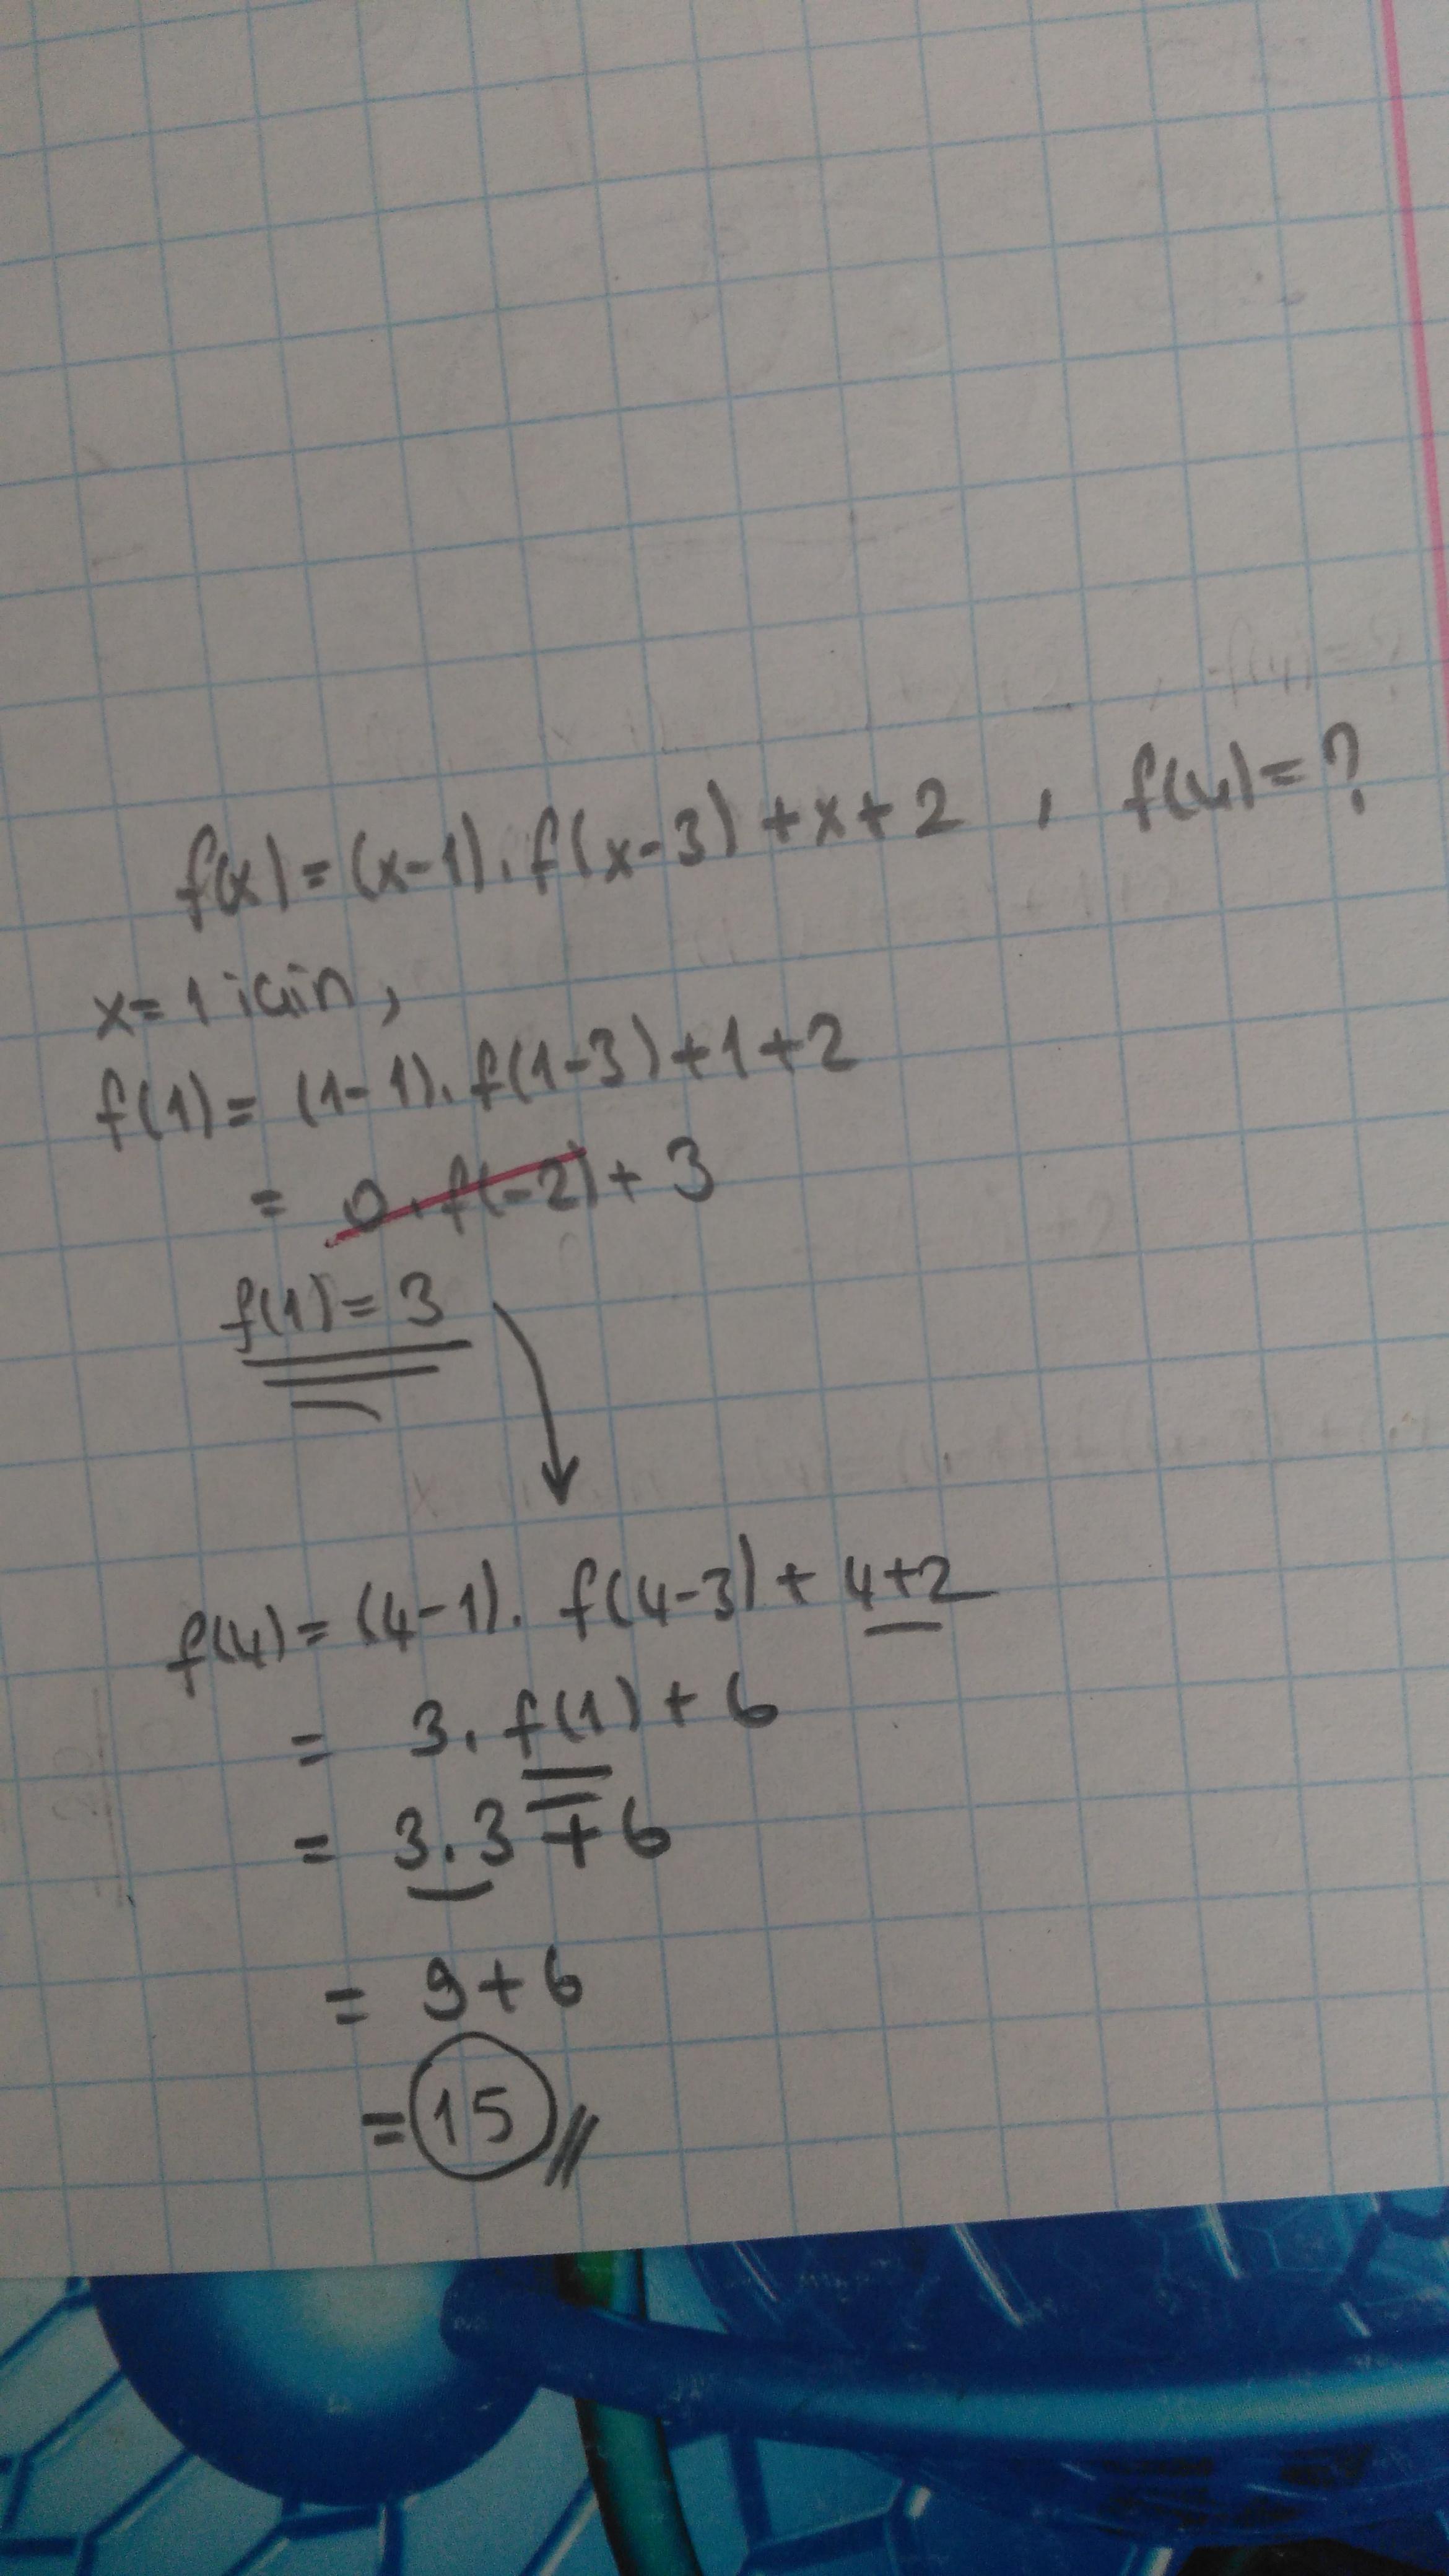 f(x) = (x-1).f(x-3)+x+2 , f(4)=?
x=1 için,
f(1)= (1-1).f(1-3)+1+2
= 0.f(-2)+3
f(1)=3
f(4)=(4-1). f(4-3)+4+2
= 3.f(1)+6
= 3.3+6
= 9+6
= 15 //